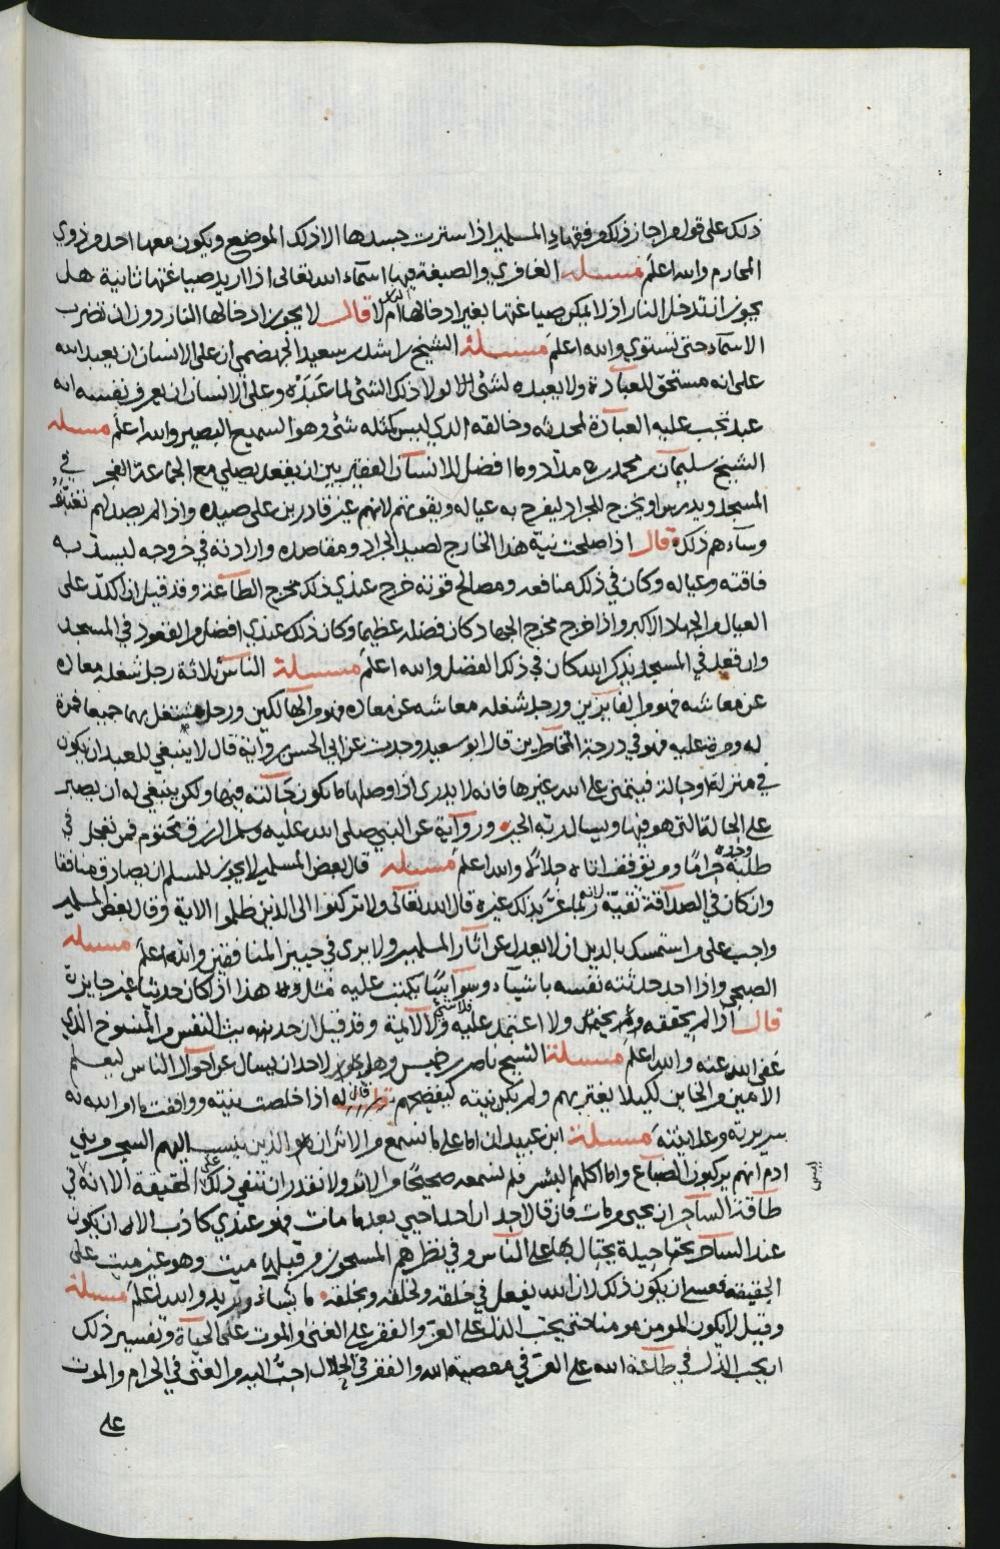 ذلك على قول من اجاز ذلك من فقهاء المسلمين اذا سترت جسدها الا ذلك الموضع ويكون معها احد من ذوي
المحارم والله اعلم مسئلة الغافري والصبغة فيها اسماء الله تعالى اذا اريد صياغتها ثانية هل
يجوز ان تدخل النار اذ لا يمكن صياغتها بغير ادخالها النار ام لا قال لا يجوز ادخالها النار دون ان تضرب
الاسماء حتى تستوي والله اعلم مسئلة الشيخ راشد بن سعيد الجهضمي ان على الانسان ان يعبد الله
على انه مستحق للعبادة ولا يعبده لشئ لولا ذلك الشئ لما عبده وعلى الانسان ان يعرف نفسه انه
عبد تجب عليه العبادة لمحدثه وخالقه الذي ليس كمثله شئ وهو السميع البصير والله اعلم مسئلة
الشيخ سليمان بن محمد بن مداد وما افضل للانسان الفقير بين ان يقعد يصلي مع الجماعة الفجر في
المسجد ويدرس او يخرج للجراد ليفرح به عياله ويقوتهم لانهم غير قادرين على صيده واذا لم يصد لهم
وساءهم ذلك قال اذا صلحت نية هذا الخارج لصيد الجراد ومقاصده وارادته في خروجه ليسد به
فاقته وعياله وكان في ذلك منافعه ومصالح قوته خرج عندي ذلك مخرج الطاعة وقد قيل ان الكد على
العيال من الجهاد الاكبر واذا خرج مخرج الجهاد كان فضله عظيما وكان ذلك عندي افضل من القعود في المسجد
وان قعد في المسجد يذكر الله كان في ذلك الفضل والله اعلم مسئلة الناس ثلاثة رجل شغله معاده
عن معاشه فهو من الفايزين ورجل شغله معاشه عن معاده فهو من الهالكين ورجل مشتغل بهما جميعا فمرة
له ومرة عليه فهو في درجة المخاطرين قال ابو سعيد وحدث عن ابي الحسن رواية قال لا ينبغي للعبد ان يكون
في منزلة او حالة فيتمنى على الله غيرها فانه لا يدري اذا وصلها ما يكون حالته فيها ولكن ينبغي له ان يصبر
على الحالة التي هو فيها ويسال ربه الخير ورواية عن النبي صلى الله عليه وسلم الرزق مختوم فمن تعجل في
طلبه وجده حراما ومن توقف اتاه حلالا والله اعلم مسئلة قال بعض المسلمين لا يجوز للمسلم ان يصادق منافقا
وان كان في الصداقة تقية لانه ربما غر بذلك غيره قال الله تعالى ولا تركنوا الى الذين ظلموا الاية وقال بعض المسلمين
واجب على من استمسك بالدين ان لا يعدل عن اثار المسلمين ولا يرى في حييز المنافقين والله اعلم مسئلة
الصبحي واذا احد حدثته نفسه باشياء وسوا يكتب عليه مثل هذا اذا كان حديثا غير جايزة
قال اذا لم يحققه ولم يحتمل ولا اعتمد عليه فلا شئ ولا لائمة وقد قيل ان حديث النفس من المنسوخ الذي
عفى الله عنه والله اعلم مسئلة الشيخ ناصر بن خميس وهل يجوز لاحد ان يسال عن احوال الناس ليعلم
الامين من الخاين لكيلا يغتر بهم ولم تكن نيته كيفضحهم قال له اذا خلصت نيته ووافقت ما امر الله به
سريرته وعلانيته مسئلة ابن عبيدان اما على ما نسمع من الاثر ان الذين ينسب اليهم السحر من بني
ادم انهم يركبون الضباع واما اكلهم البشر فلم نسمعه صحيحا من الاثر ولا نقدر ان ننفي ذلك على الحقيقة الا انه ليس في
طاقة الساحر ان يحيي من مات فان قال احد ان احدا حيي بعد ما مات فهو عندي كاذب الا ان يكون
عند الساحر بحتها حيلة يحتال بها على الناس وفي نظرهم المسحور من قبلها ميت وهو غير ميت على
الحقيقة فعسى ان يكون ذلك لان الله يفعل في خلقه ولخلقه وبخلقه ما يشاء ويريد والله اعلم مسئلة
وقيل لا يكون المومن مومنا حتى يحب الذل على العز والفقر على الغنى والموت على الحياة وتفسير ذلك
ان يحب الذل في طاعة الله على العز في معصية الله والفقر في الحلال احب اليه من الغنى في الحرام والموت
على